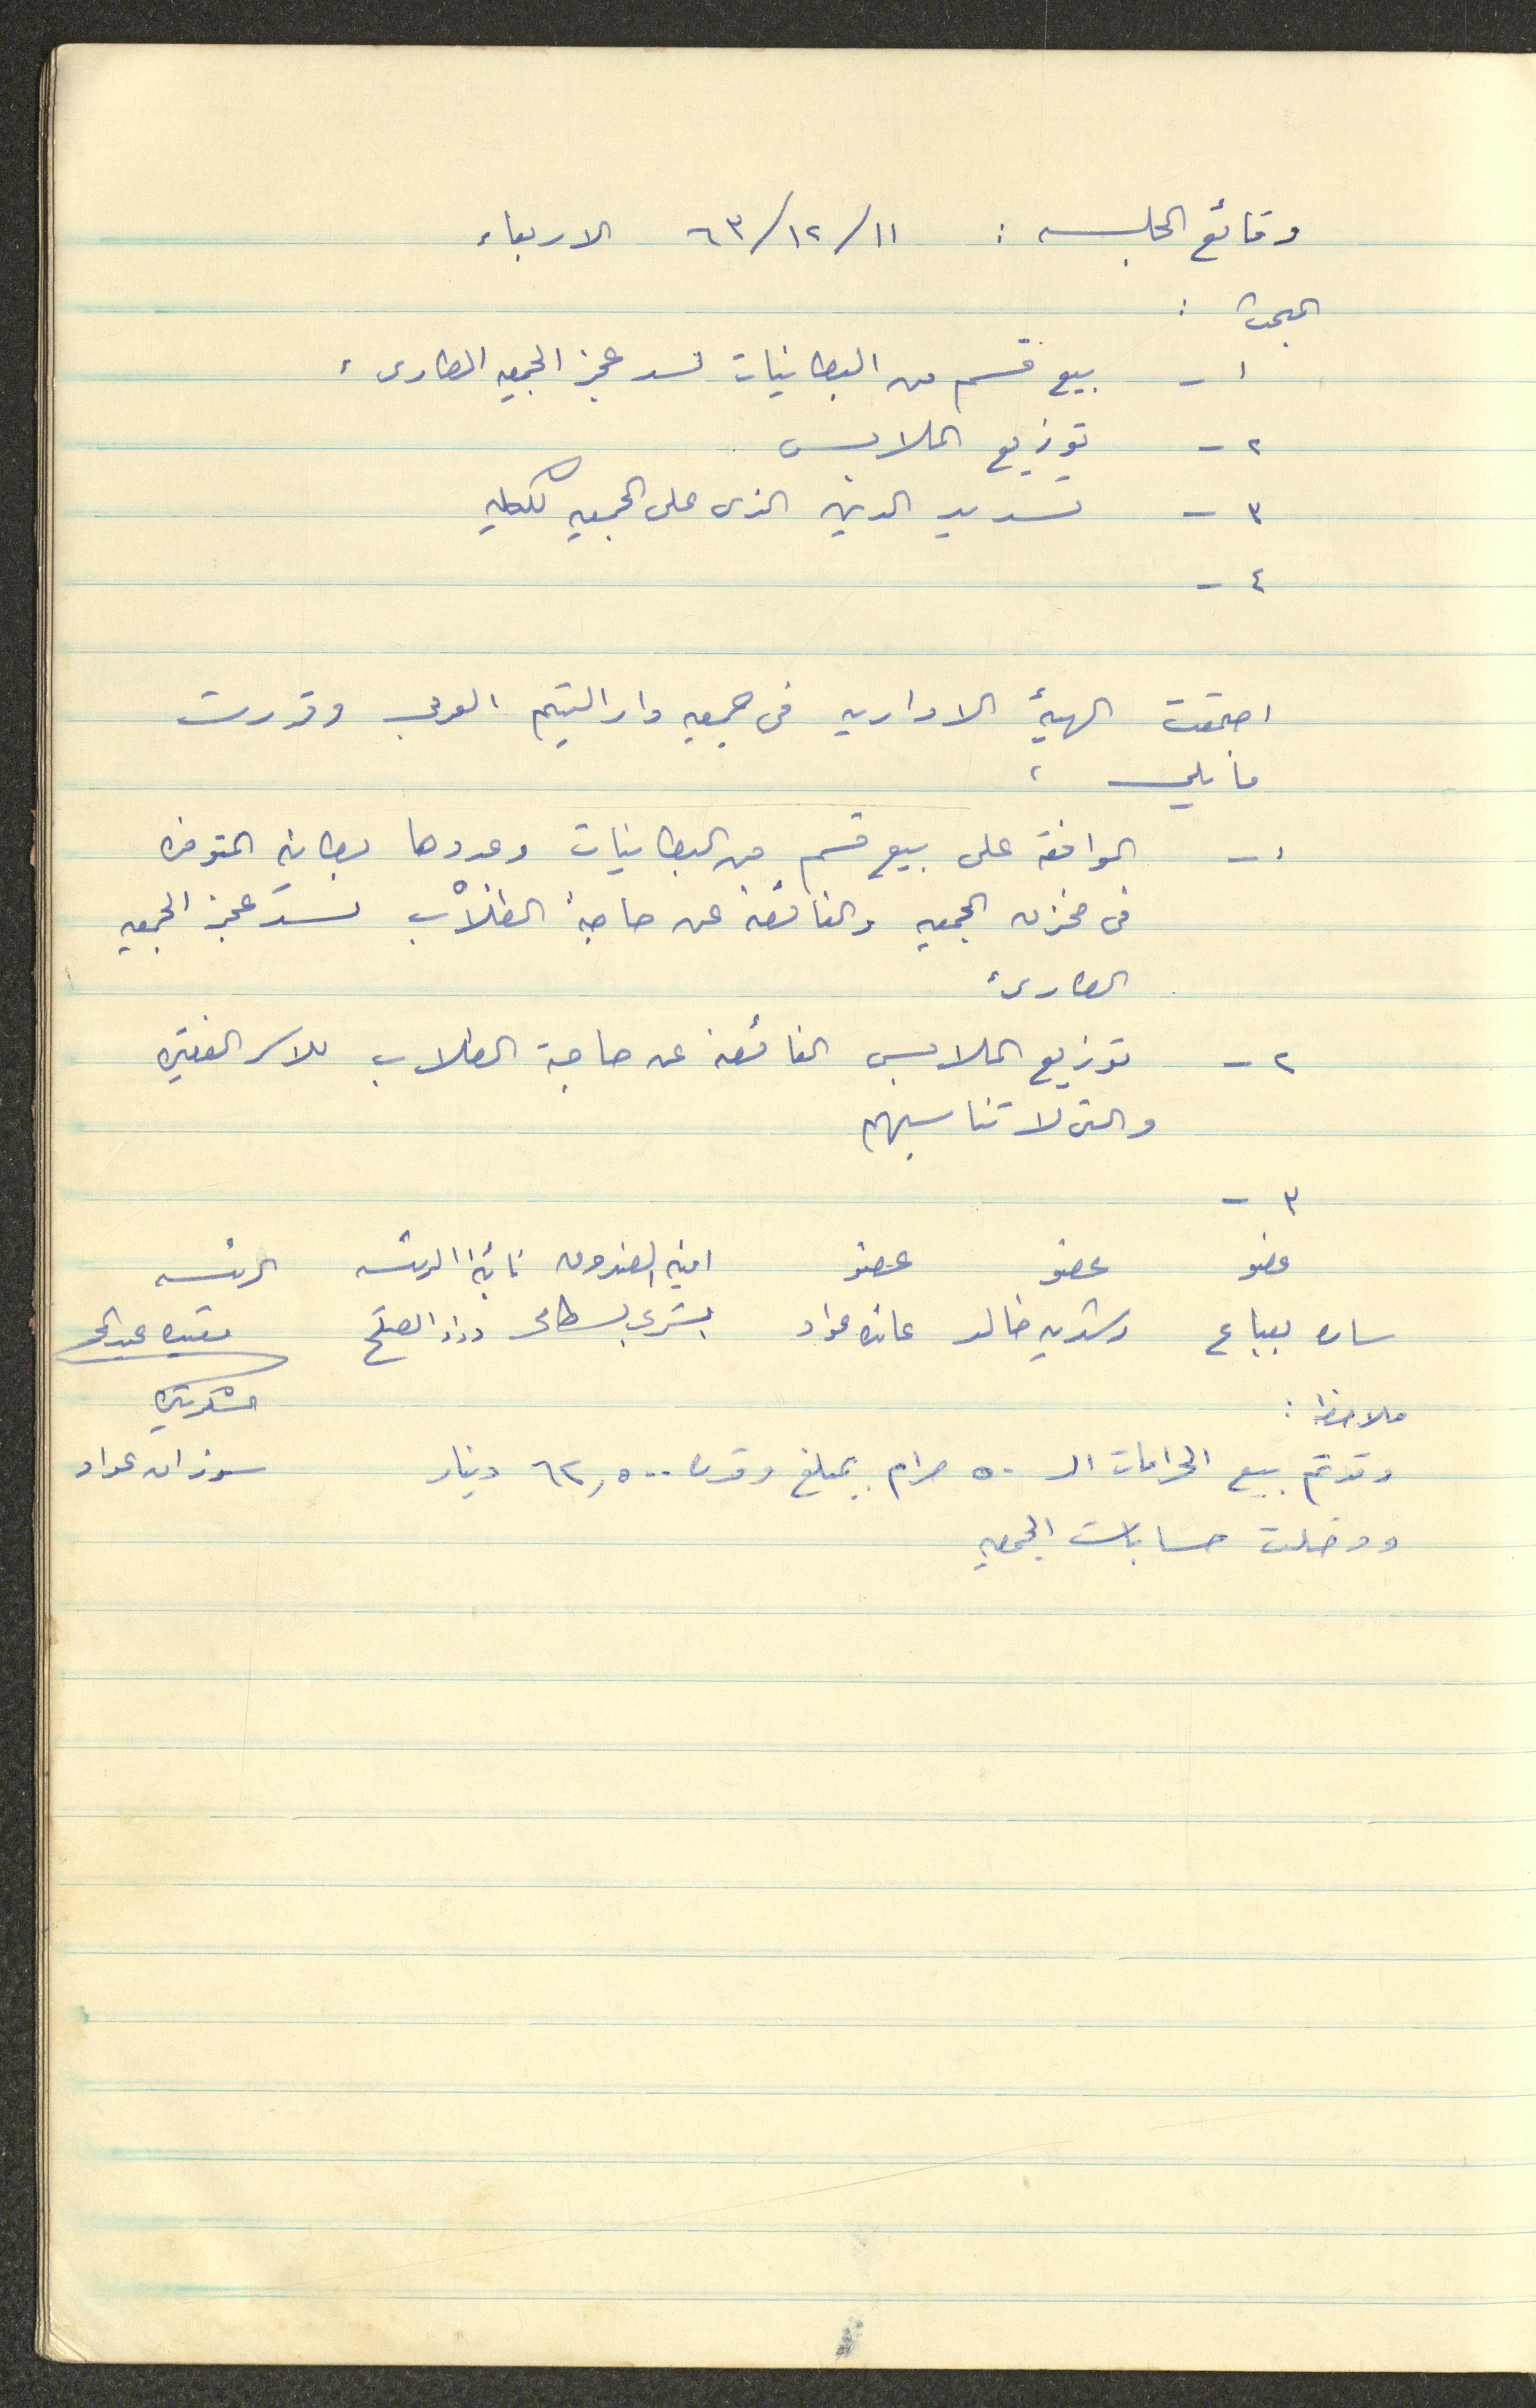 وقائع الجلسه : ١١/١٢/٦٣ الاربعاء
البحث :
١ - بيع قسم من البطانيات لسد عجز الجمعيه الطارىء
٢ - توزيع الملابس
٣ - تسديد الدين الذى على الجمعيه للكليه
٤ -
اجتمعت الهيئة الاداريه فى جمعيه دار اليتيم العربي وقررت
ما يلي :
١ - الموافقه على بيع قسم من البطانيات وعددها بطانيه المتوفره
فى مخزن الجمعيه والفائضه عن حاجة الطلاب لسد عجز الجمعيه
الطارىء
٢ - توزيع الملابس الفائضه عن حاجة الطلاب للاسر الفقيره
والتى لا تناسبهم
٣ -
عضو عضو عضو امينه الصندوق نائبة الرئيسه الرئيسه
ساره بعباع رشديه خالد عائده عواد بشرى بسطامى الصلح
ملاحظه : سكرتيره
وقد تم بيع الحرامات الـ ٥٠ حرام بمبلغ وقدره ٦٢,٥٠٠ دينار سوزان عواد
ودخلت حسابات الجمعيه